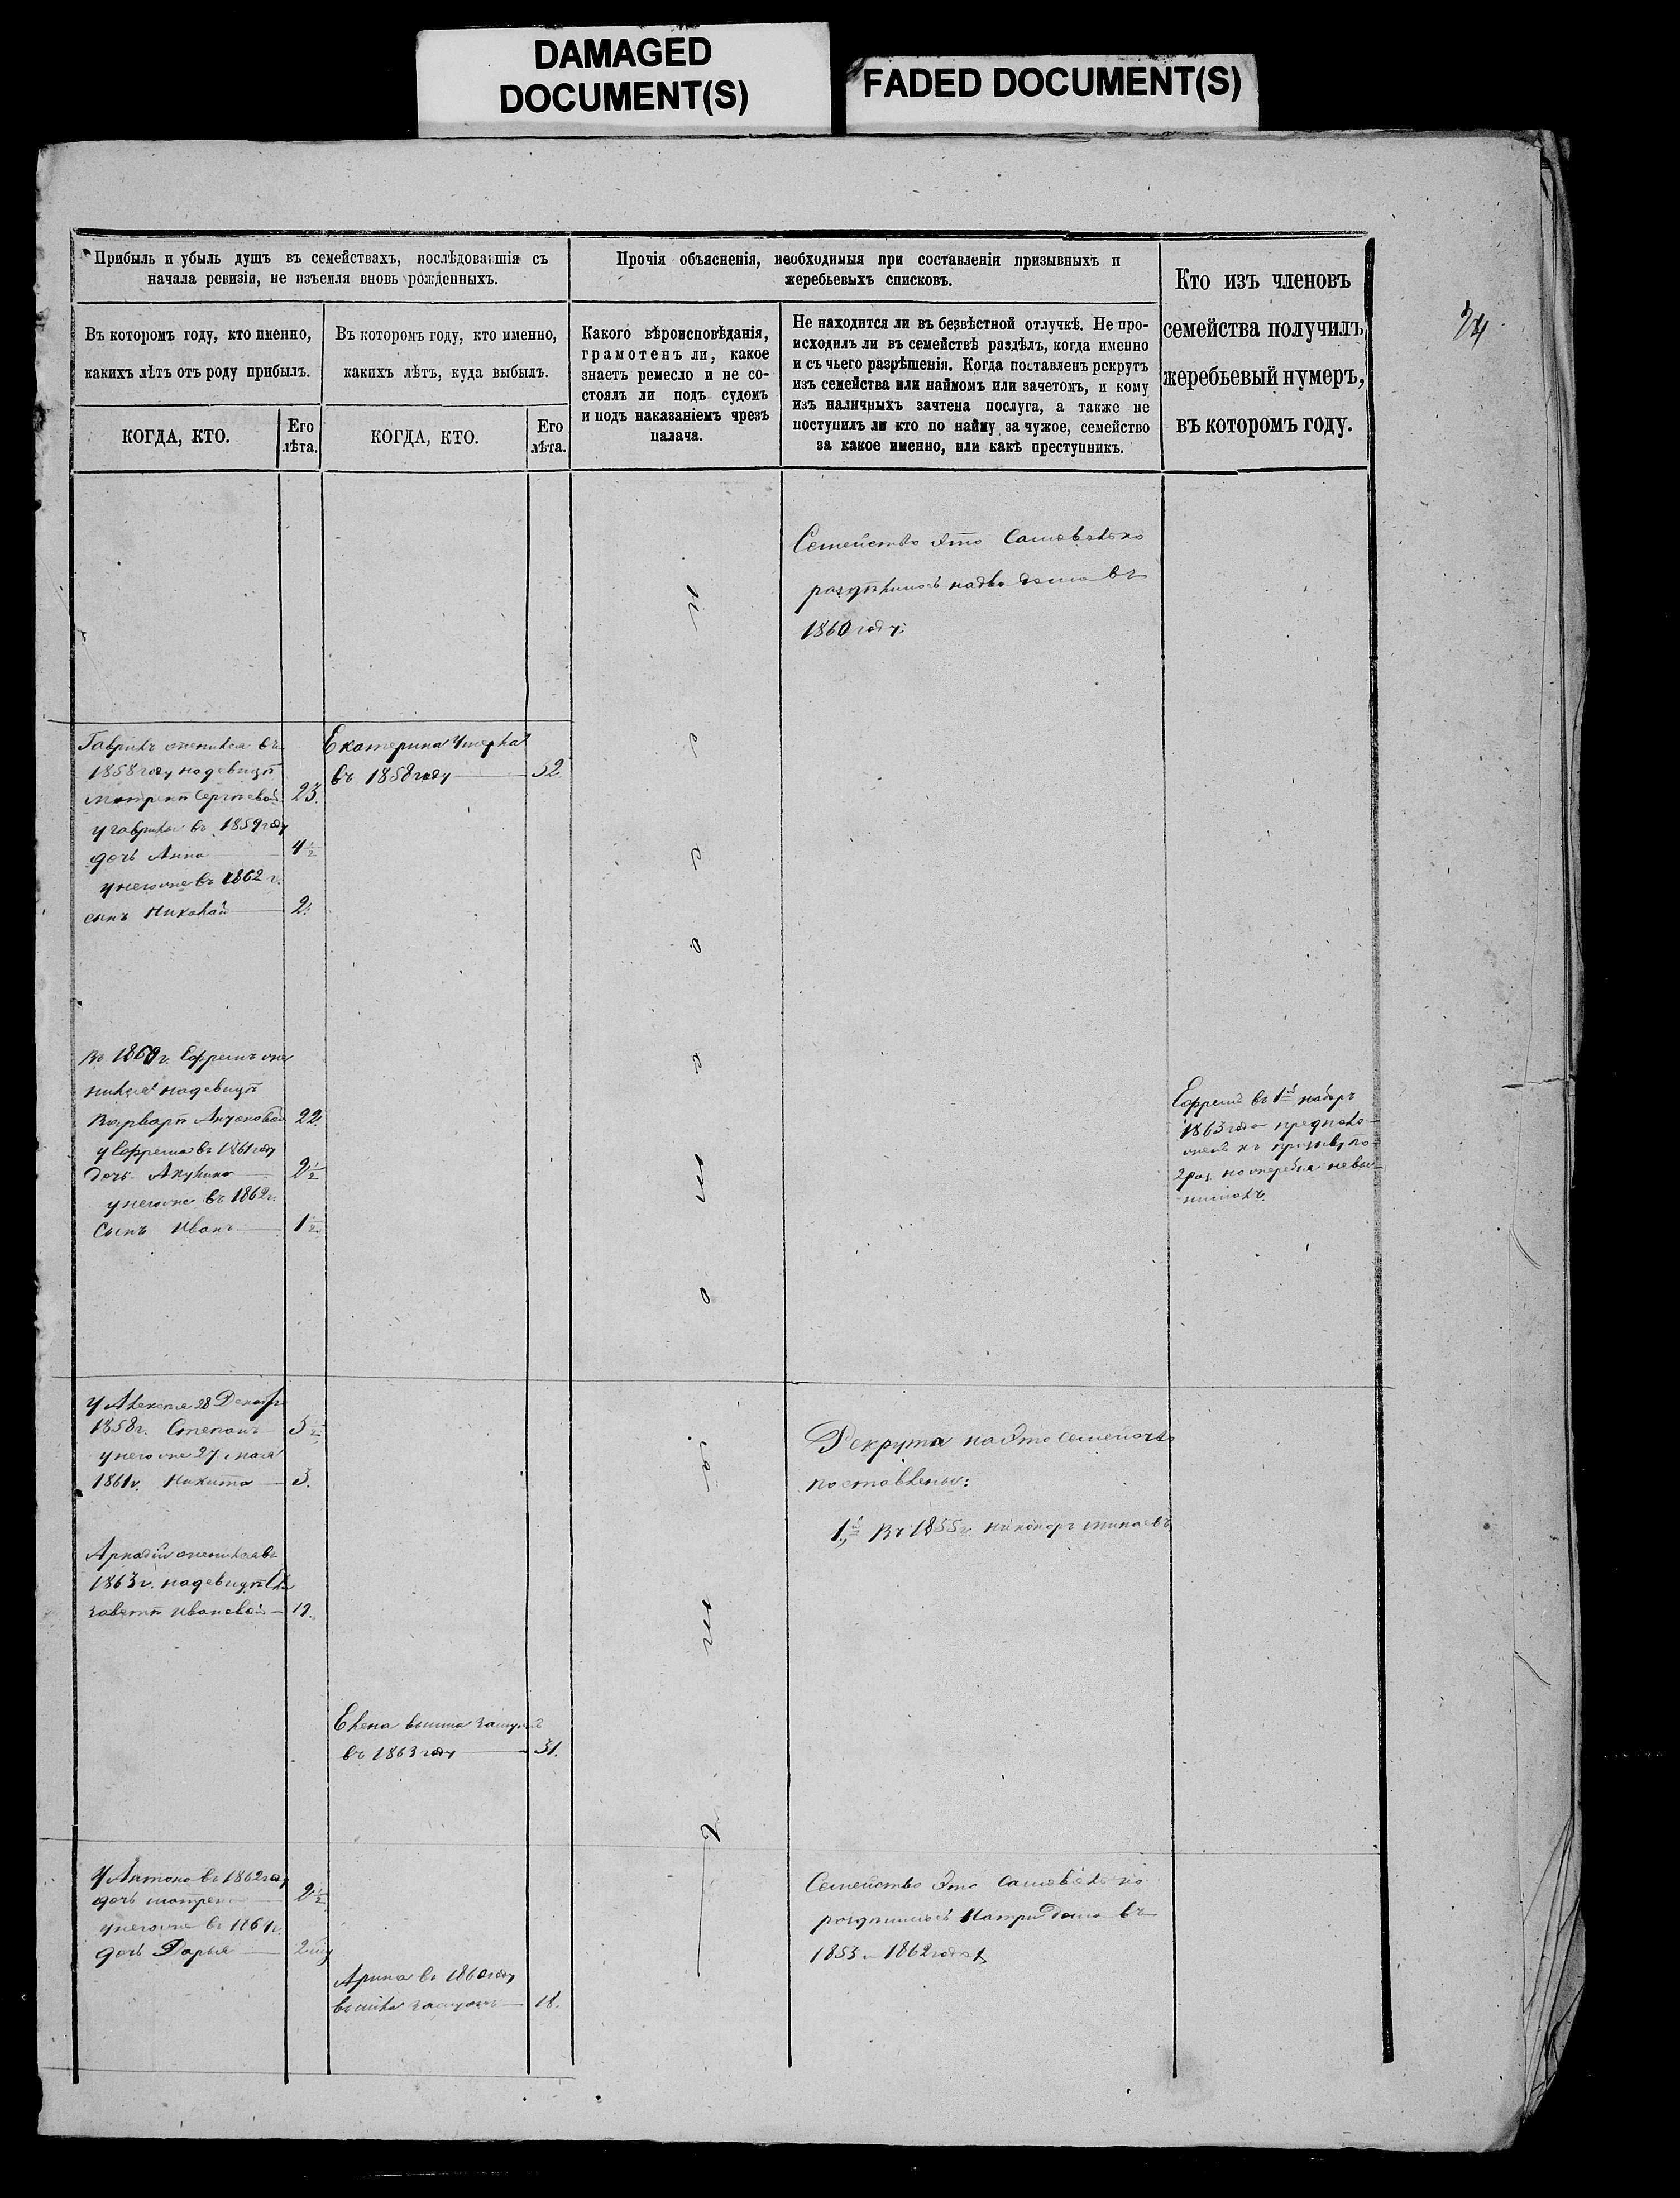 DAMAGED
DOCUMENT(S)
FADED DOCUMENT(S)
Прибыль и убыль душъ въ семействахъ, послѣдовавшія съ
начала ревизіи, не изъемля вновь рожденныхъ.
Въ которомъ году, кто именно,
какихъ лѣтъ отъ роду прибылъ.
КОГДА, КТО.
Его
лѣта.
Въ которомъ году, кто именно,
какихъ лѣтъ, куда выбылъ.
КОГДА, КТО.
Его
лѣта.
Прочія объясненія, необходимыя при составленіи призывныхъ и
жеребьевыхъ списковъ.
Какого вѣроисповѣданія,
грамотенъ ли, какое
знаетъ ремесло и не со-
стоялъ ли подъ судомъ
и подъ наказаніемъ чрезъ
палача.
Не находится ли въ безвѣстной отлучкѣ. Не про-
исходилъ ли въ семействѣ раздѣлъ, когда именно
и съ чьего разрѣшенія. Когда поставленъ рекрутъ
изъ семейства или наймомъ или зачетомъ, и кому
изъ наличныхъ зачтена послуга, а также не
поступилъ ли кто по найму за чужое, семейство
за какое именно, или какъ преступникъ.
Кто изъ членовъ
семейства получилъ
жеребьевый нумеръ,
въ которомъ году.
Семейство это самовольно
раздѣлилось на два дома въ
1860 году.
Гаврилъ женился въ
1858 году на девицѣ
Матренѣ Сергѣевой 23.
у Гаврила въ 1859 году
дочь Анна 4½
у него же въ 1862 г.
сынъ Николай 2.
Екатерина умерла
въ 1858 году 52
Въ 1860 г. Ефремъ же
нился на девицѣ
Варварѣ 22.
у Ефрема въ 1861 году
дочь Акулина 2½
у него же въ 1862 г.
Сынъ Иванъ 1½
Ефремъ въ 1й наборъ
1863 года
У Алексея 28 Декабр
1858 г. Степанъ 5½
у него же 27 мая
1861 г. Никита 3.
Аркадій женился въ
1863 г. на девицѣ Ели
заветѣ Ивановой 19.
Рекрута на это семейство
поставлены:
1й Въ 1855 г. Никоноръ Минаевъ
Елена вышла замужъ
въ 1863 году 31.
У Антона въ 1862 году
дочь Матрена 2½
у него же въ 1864 г.
дочь Дарья
Арина въ 1860 году
вышла замужъ 18.
Семейство это самовольно
раздѣлилось на три дома въ
1853 и 1862 годах